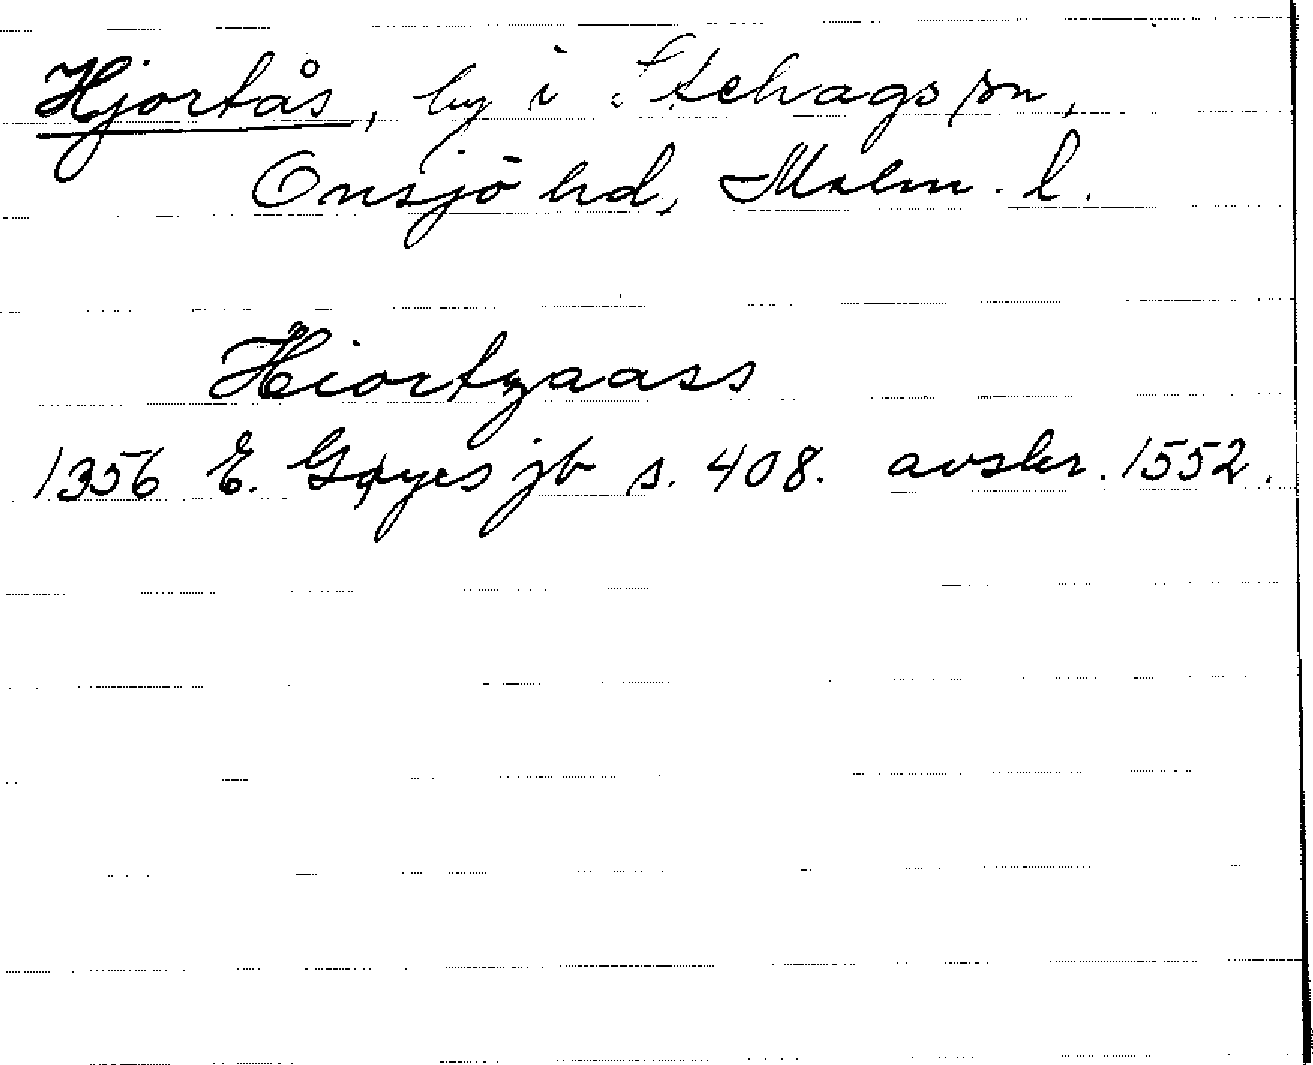 Hjortås, by i Stehags sn,
Onsjö hd, Malm. l.
Hiortzaass
1356 E. Gøyes jb s. 408. avskr. 1552.